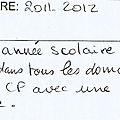 RE: 2011-2012
année scolaire
dans tous les dom
CP avec une